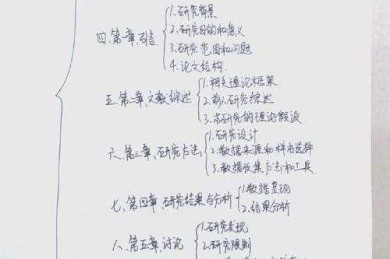 四、第一章、引言
1.研究背景
2.研究目的和意义
3.研究范围和问题
4.论文结构
五、第二章、文献综述
1.相关理论框架
2.前人研究综述
3.本研究的理论假设
六、第三章、研究方法
1.研究设计
2.数据来源和样本选择
3.数据收集方法和工具
七、第四章、研究结果与分析
1.数据呈现
2.结果分析
八、第五章、讨论
1.研究发现
2.研究限制